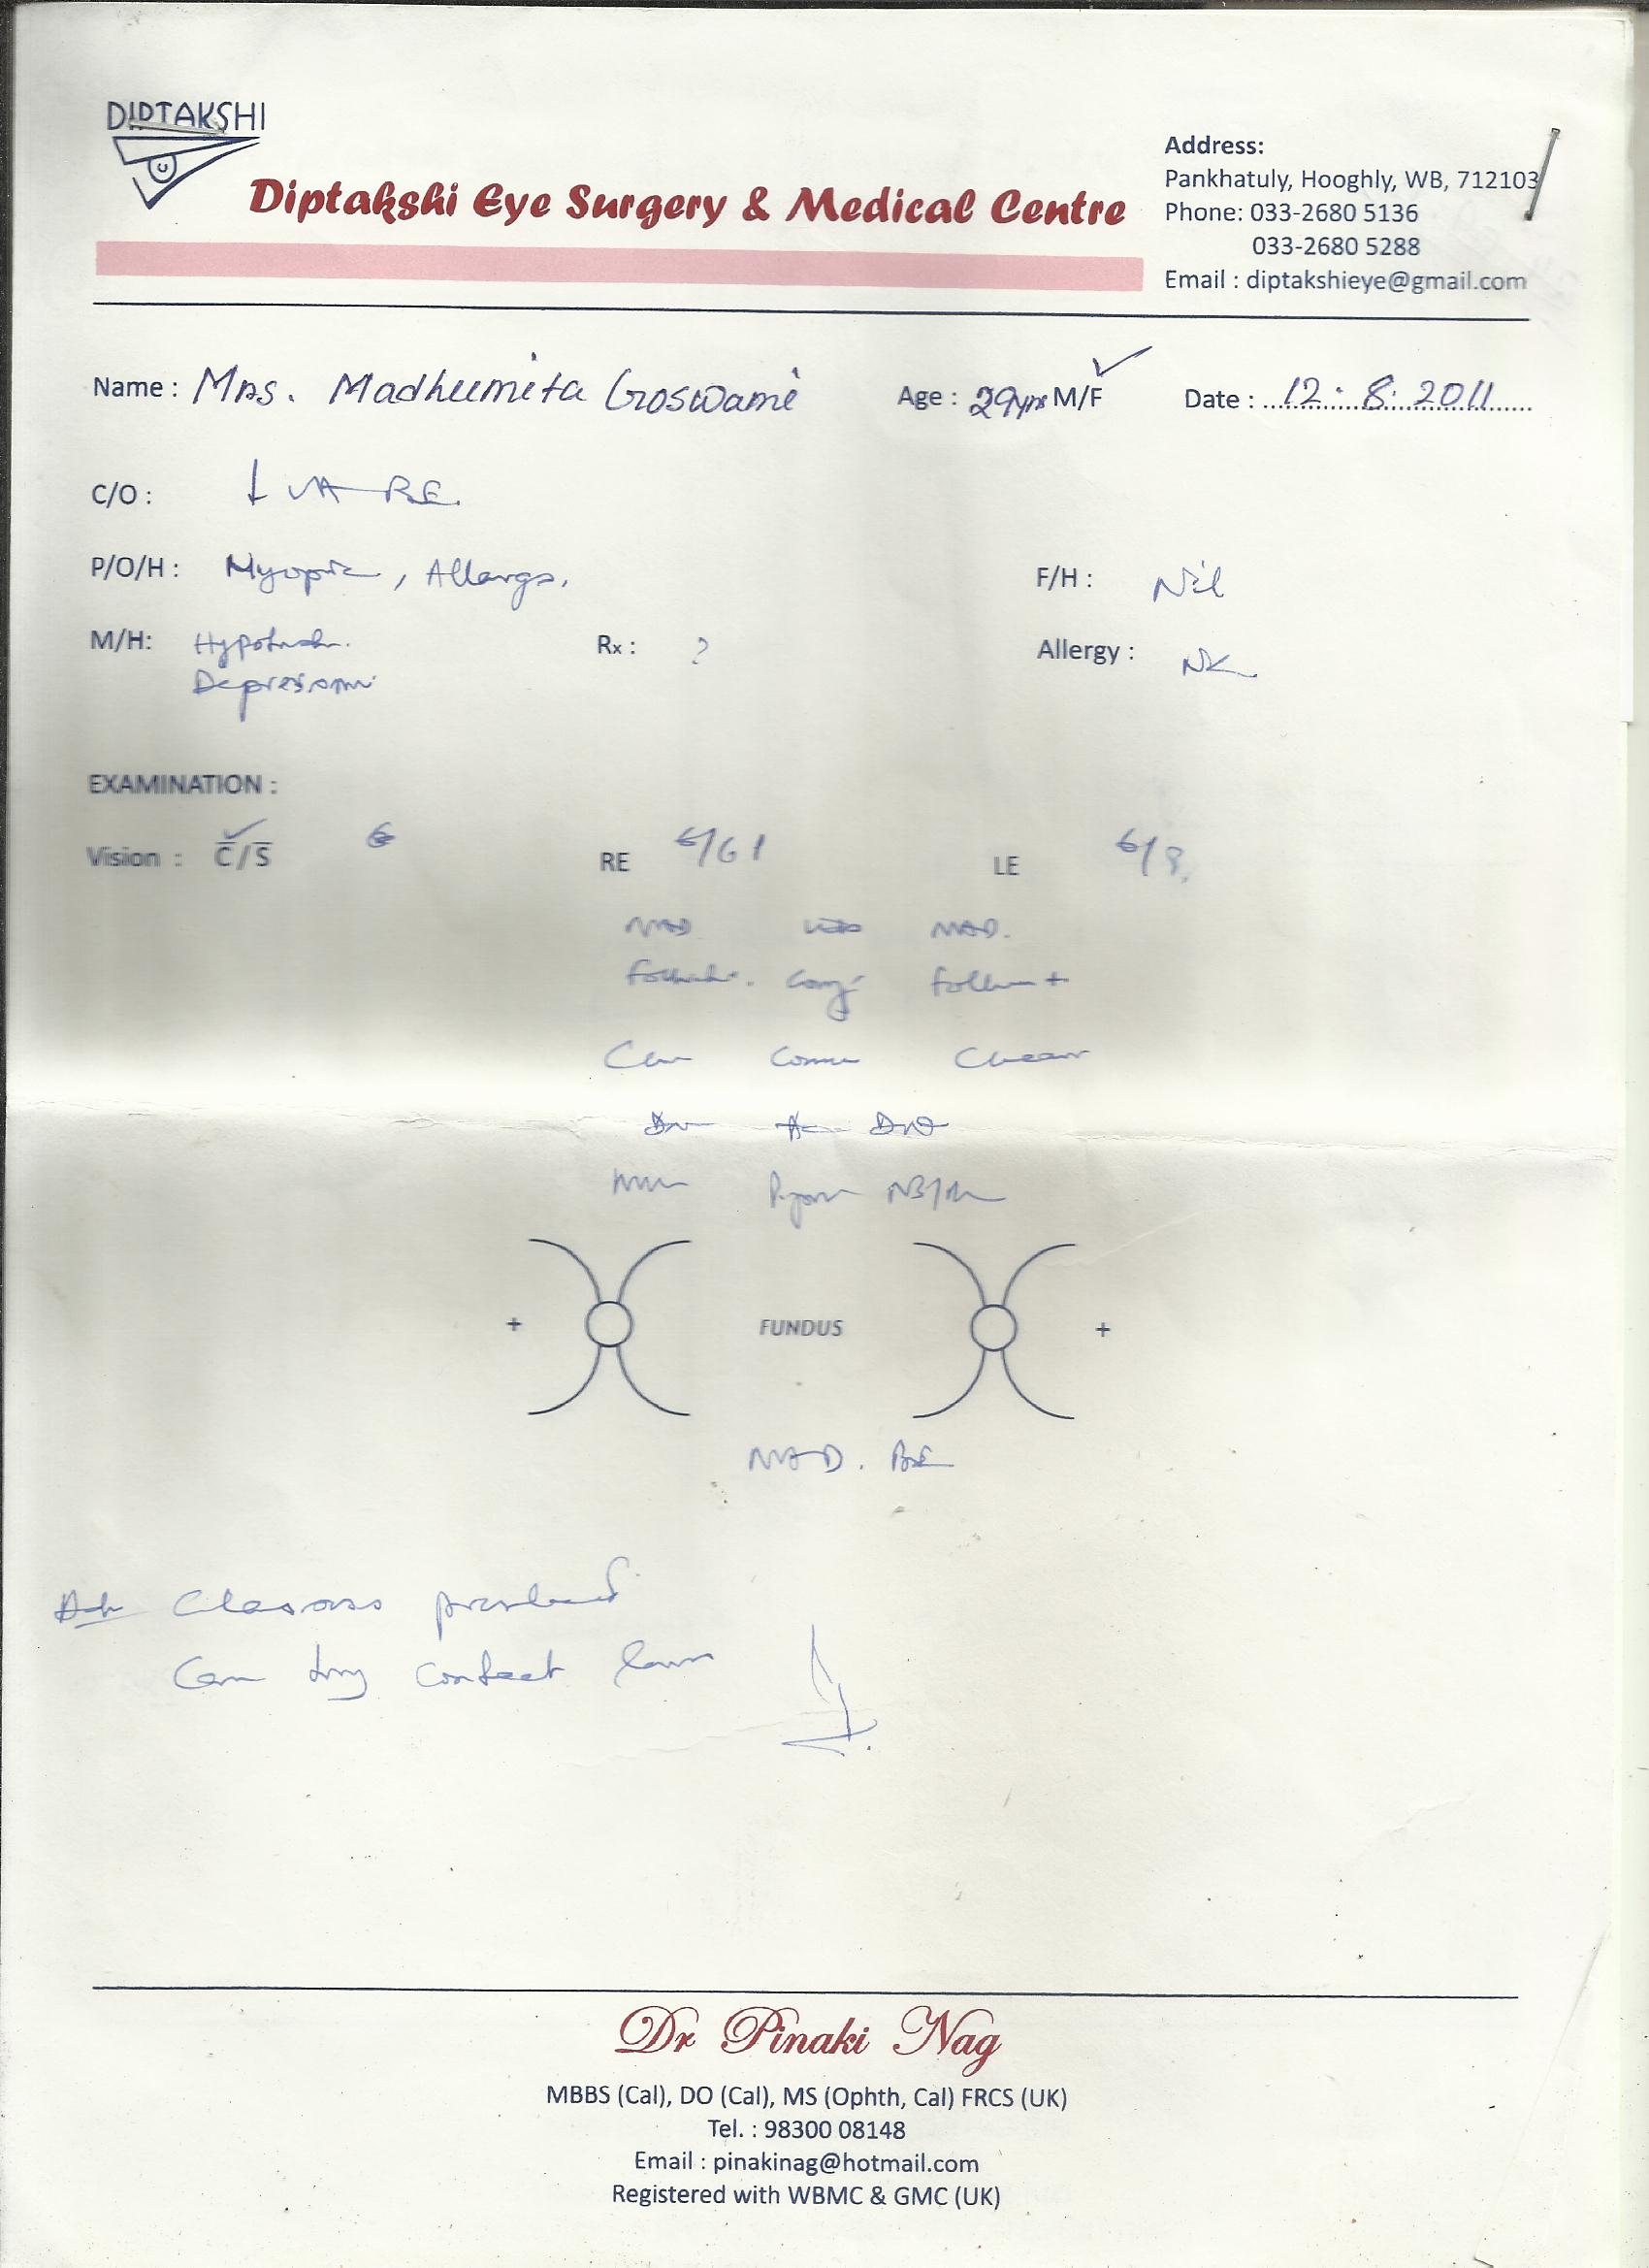 DIPTAKSHI
Diptakshi Eye Surgery & Medical Centre
Address:
Pankhatuly, Hooghly, WB, 712103
Phone: 033-2680 5136
033-2680 5288
Email : diptakshieye@gmail.com
Name : Mrs. Madhumita Goswami Age : 29yrs M/F Date : 12.8.2011
C/O : ↓ VA RE.
P/O/H : Myopia, Allergy. F/H : Nil
M/H: Rx : ? Allergy : NK
Depression
EXAMINATION :
Vision : C/S 6 RE 6/6 LE 6/9
NAD NAD.
Conj
Clear
FUNDUS
+ +
NAD. BE
Glasses prescribed
Can try contact lens
Dr Pinaki Nag
MBBS (Cal), DO (Cal), MS (Ophth, Cal) FRCS (UK)
Tel. : 98300 08148
Email : pinakinag@hotmail.com
Registered with WBMC & GMC (UK)